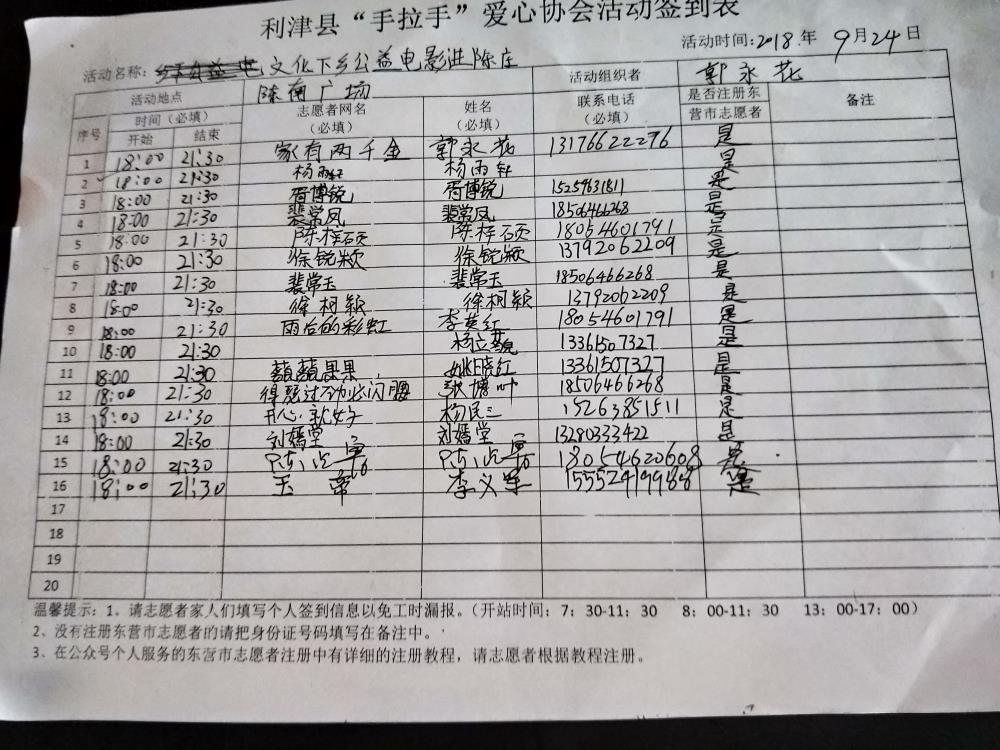 利津县“手拉手”爱心协会活动签到表
活动时间:2018年 9月24日
活动名称: 文化下乡公益电影进陈庄 活动组织者 郭永花
活动地点 陈南广场
序号 时间(必填) 志愿者网名(必填) 姓名(必填) 联系电话(必填) 是否注册东营市志愿者 备注
开始 结束
1 18:00 21:30 家有两千金 郭永花 13176622276 是
2 18:00 21:30 杨雨轩 杨雨轩 是
3 18:00 21:30 胥博锐 胥博锐 15259631811 是
4 18:00 21:30 裴常凤 裴常凤 18506466268 是
5 18:00 21:30 陈梓硕 陈梓硕 18054601791 是
6 18:00 21:30 徐锐颖 徐锐颖 13792062209 是
7 18:00 21:30 裴常玉 裴常玉 18506466268 是
8 18:00 21:30 徐柯颖 徐柯颖 13792062209 是
9 18:00 21:30 雨后的彩虹 李英红 18054601791 是
10 18:00 21:30 杨立 13361507327 是
11 18:00 21:30 果果 姚晓红 13361507327 是
12 18:00 21:30 得瑟过劲必闪腰 张博叶 18506466268 是
13 18:00 21:30 开心就好 杨民三 15263851511 是
14 18:00 21:30 刘嫱堂 刘嫱堂 13280333422 是
15 18:00 21:30 陈 陈 18054620608 是
16 18:00 21:30 李义军 15552419988 是
17
18
19
20
温馨提示: 1、请志愿者家人们填写个人签到信息以免工时漏报。(开站时间: 7: 30-11: 30 8: 00-11: 30 13: 00-17: 00)
2、没有注册东营市志愿者的请把身份证号码填写在备注中。
3、在公众号个人服务的东营市志愿者注册中有详细的注册教程，请志愿者根据教程注册。